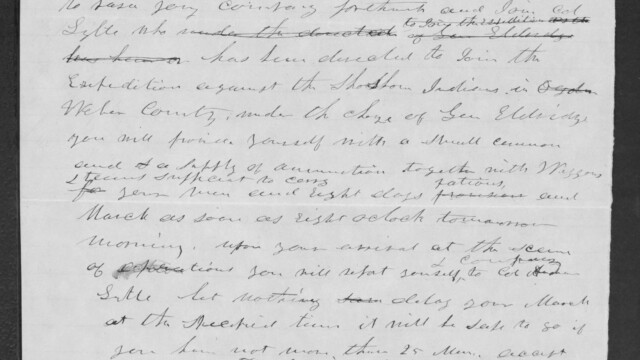 to raise your Company forthwith and Join Col
to Join the Expedition
Lytle who under the directed of Gen Eldredge
has been directed to Join the
Expedition against the Shoshone Indians, in Ogden
Weber County, under the charge of Gen Eldredge
you will provide yourself with a small common
and & a supply of ammunition together with Waggons
& teams sufficient to carry rations,
for your men and eight days provision and
March as soon as eight oclock tomorrow
morning. upon your arrival at the scene
& Company
of operations you will report yourself, to Col
Lytle let nothing delay your March
at the specified time it will be safe to go if
you have not more than 25 Men. except